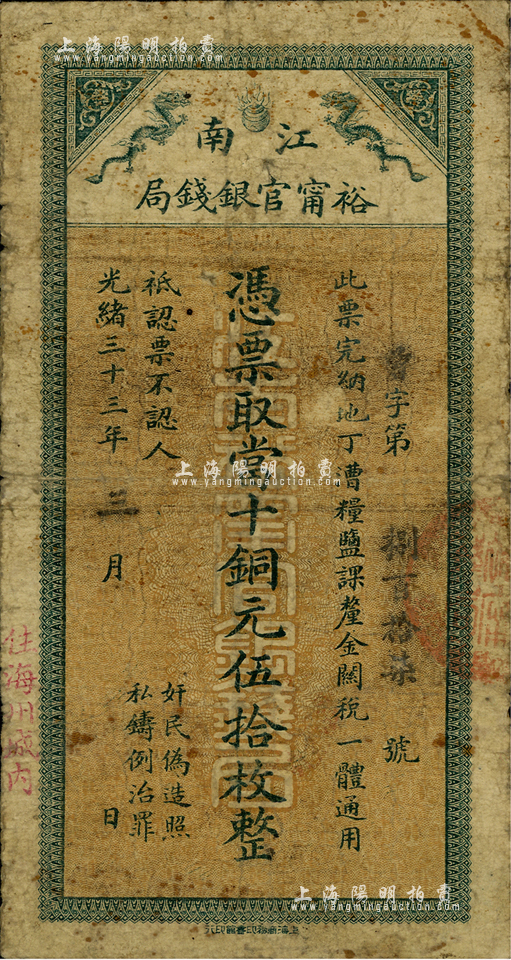 上海陽明拍賣
www.yangmingauction.com
江南
裕甯官銀錢局
字第捌百拾柒號
此票完納地丁漕糧鹽課釐金關稅一體通用
憑票取當十銅元伍拾枚整
祗認票不認人
奸民偽造照
私鑄例治罪
光緒三十三年三月 日
住海州城內
上海陽明拍賣
www.yangmingauction.com
上海陽明拍賣
www.yangmingauction.com
上海商務印書館印行